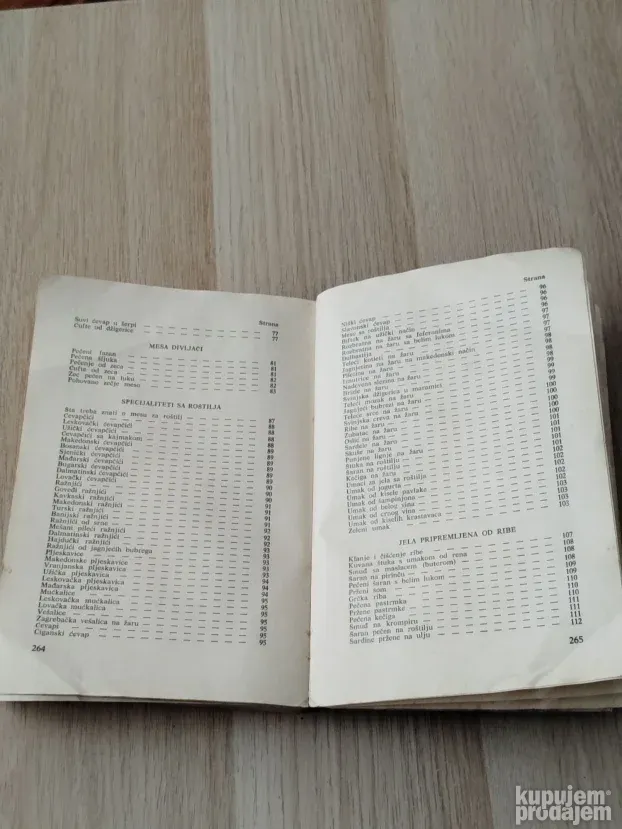 Strana
Suvi ćevap u šerpi — 77
Ćufte od džigerice — 77
MESA DIVLJAČI
Pečeni fazan — 81
Pečena šljuka — 81
Pečenje od zeca — 82
Ćufte od zeca — 82
Zec pečen na luku — 82
Pohovano zečje meso — 83
SPECIJALITETI SA ROŠTILJA
Šta treba znati o mesu za roštilj — 87
Ćevapčići — 88
Leskovački ćevapčići — 88
Užički ćevapčići — 88
Ćevapčići sa kajmakom — 88
Makedonski ćevapčići — 89
Bosanski ćevapčići — 89
Sjenički ćevapčići — 89
Mađarski ćevapčići — 89
Bugarski ćevapčići
Dalmatinski ćevapčići
Lovački ćevapčići
Ražnjići
Goveđi ražnjići
Kavkaski ražnjići
Makedonski ražnjići
Turski ražnjići
Banijski ražnjići
Ražnjići od srne
Mešani pileći ražnjići
Dalmatinski ražnjići
Hajdučki ražnjići
Ražnjići od jagnjećih bubrega
Pljeskavice
Makedonske pljeskavice
Vranjanska pljeskavica
Užička pljeskavica
Leskovačka pljeskavica
Mađarska pljeskavica
Mućkalice
Leskovačka mućkalica
Lovačka mućkalica
Vešalice
Zagrebačka vešalica na žaru — 95
Ćevapi — 95
Ciganski ćevap — 95
264
Strana
Niški ćevap — 96
ćevap — 96
Meso sa roštilja — 96
Biftek na užički način
Rozbratna na žaru sa feferonima
Rozbratna na žaru sa belim lukom
Teleći kotlet na žaru
Jagnjetina na žaru na način
Piletina na žaru
na žaru
slanina na žaru
Brizle na žaru
Svinjska džigerica u maramici
Teleći mozak na žaru
Jagnjeći bubrezi na žaru
Teleće srce na žaru
Svinjska creva na žaru
Ribe na žaru
Zubatac na žaru
na žaru
Sardele na žaru
Skuše na žaru
Punjene lignje na žaru
Štuka na roštilju
Šaran na roštilju
Kečiga na žaru
Umaci za jela sa roštilja
Umak od jogurta
Umak od kisele pavlake
Umak od šampinjona
Umak od belog vina
Umak od crnog vina
Umak od kiselih krastavaca — 103
Zeleni umak — 103
JELA PRIPREMLJENA OD RIBE
Klanje i čišćenje ribe — 107
Kuvana štuka s umakom od rena — 108
Smuđ sa maslacem (buterom) — 108
Šaran na pirinču — 108
Pečeni šaran s belim lukom — 109
Prženi som — 109
Grčka riba — 110
Pečena pastrmka — 110
Pržene pastrmke — 111
Pečena kečiga — 111
Smuđ na krompiru — 111
Šaran pečen na roštilju — 111
Sardine pržene na ulju — 112
265
kupujem
prodajem